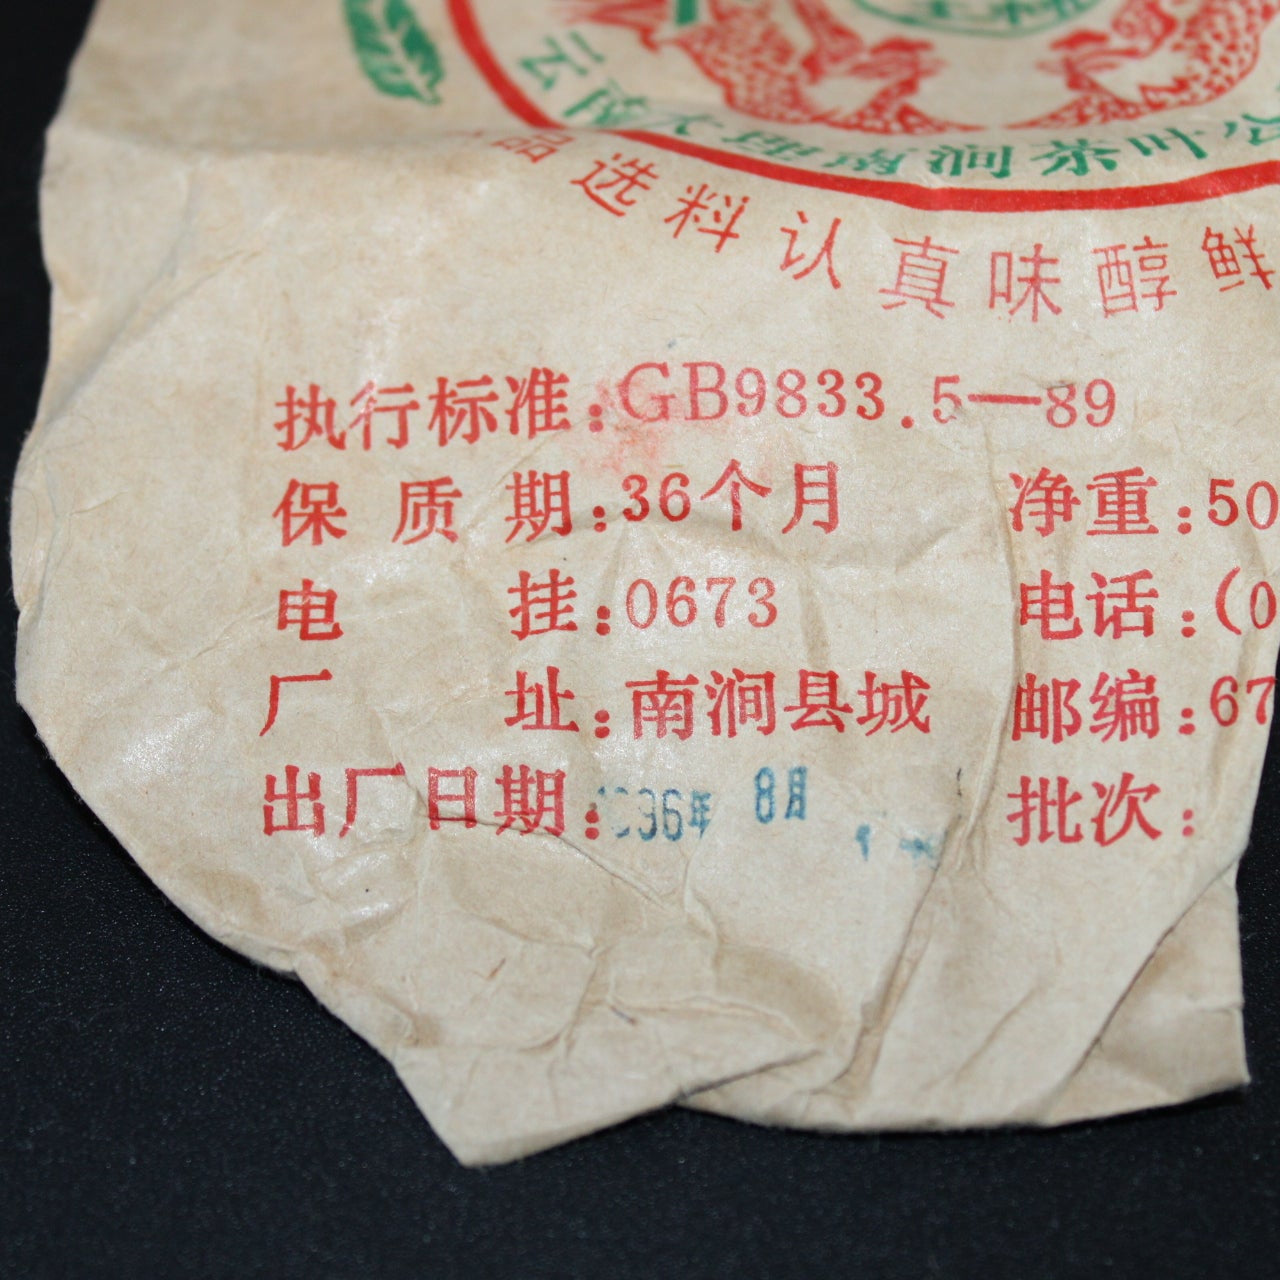 云南大理南涧茶叶公
品选料认真味醇鲜
执行标准:GB9833.5—89
保质期:36个月 净重:50
电挂:0673 电话:(0
厂址:南涧县城 邮编:67
出厂日期:1996年 8月 批次: